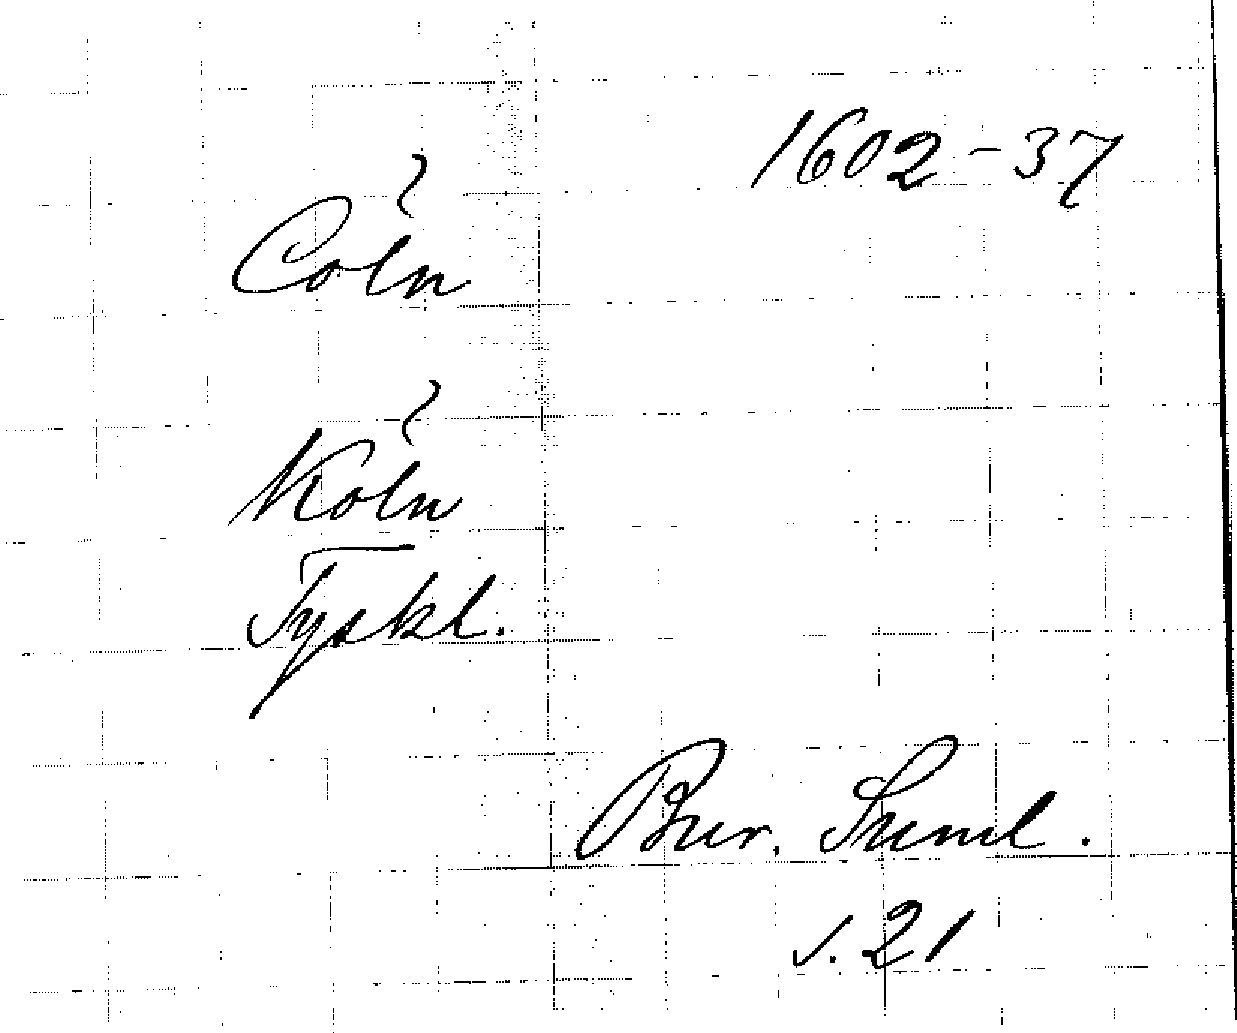 1602-37
Cöln
Köln
Tyskl.
Bur. Suml.
s. 21